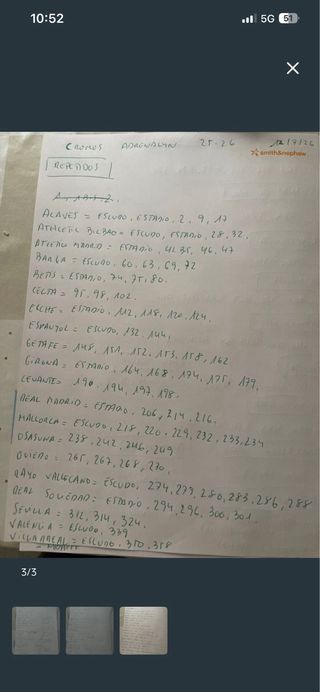 10:52
5G 51
CROMOS ADRENALYN 25-26 12/7/26
smith&nephew
REPETIDOS
ALAVES = ESCUDO, ESTADIO, 2, 9, 17
ATHLETIC BILBAO = ESCUDO, ESTADIO, 28, 32.
ATLETICO MADRID = ESTADIO, 42, 35, 46, 47
BARÇA = ESCUDO, 60, 63, 69, 72
BETIS = ESTADIO, 74, 75, 80.
CELTA = 95, 98, 102.
ELCHE = ESTADIO, 112, 118, 120, 124.
ESPANYOL = ESCUDO, 132, 144,
GETAFE = 148, 151, 152, 153, 158, 162
GIRONA = ESTADIO, 164, 168, 174, 175, 179,
LEVANTE = 190, 194, 197, 198.
REAL MADRID = ESTADIO, 206, 214, 216.
MALLORCA = ESCUDO, 218, 220, 229, 232, 233, 234
OSASUNA = 238, 242, 246, 249
OVIEDO = 265, 267, 268, 270.
RAYO VALLECANO = ESCUDO, 274, 279, 280, 283, 286, 288
REAL SOCIEDAD = ESTADIO, 294, 296, 300, 301.
SEVILLA = 312, 314, 324.
VALENCIA = ESCUDO, 339
VILLARREAL = ESCUDO, 350, 358
3/3